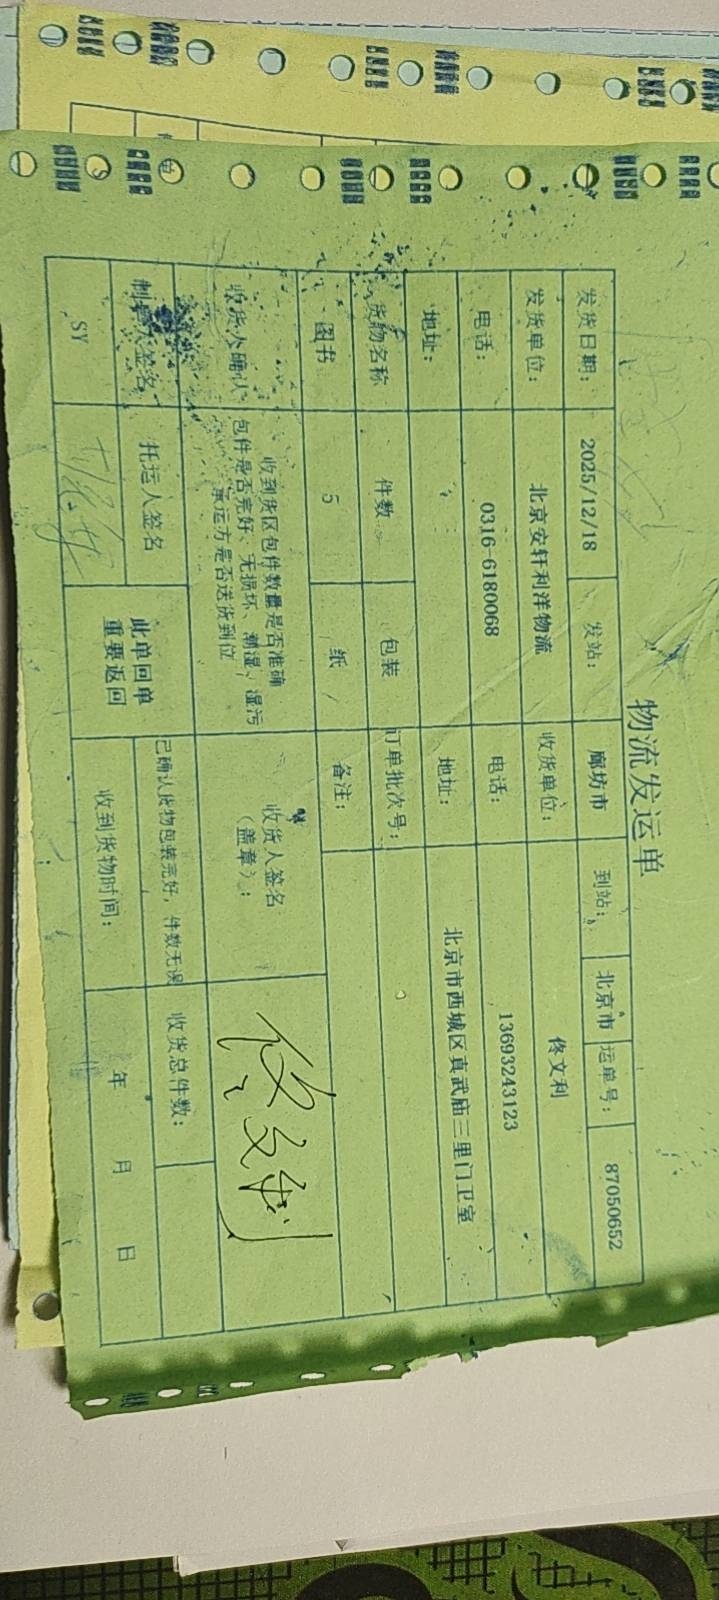 物流发运单
发货日期： 2025/12/18 发站： 廊坊市 到站： 北京市 运单号： 87050652
发货单位： 北京安轩利洋物流 收货单位： 佟文利
电话： 0316-6180068 电话： 13693243123
地址： 地址： 北京市西城区真武庙三里门卫室
货物名称 件数 包装 订单批次号：
图书 5 纸 备注：
收货人确认 收到货区包件数量是否准确 收货人签名
包件是否完好、无损坏、潮湿、湿污 （盖章）： 佟文利
承运方是否送货到位
制单人签名 托运人签名 此单回单 已确认货物包装完好，件数无误 收货总件数：
重要返回
SY 收到货物时间： 年 月 日